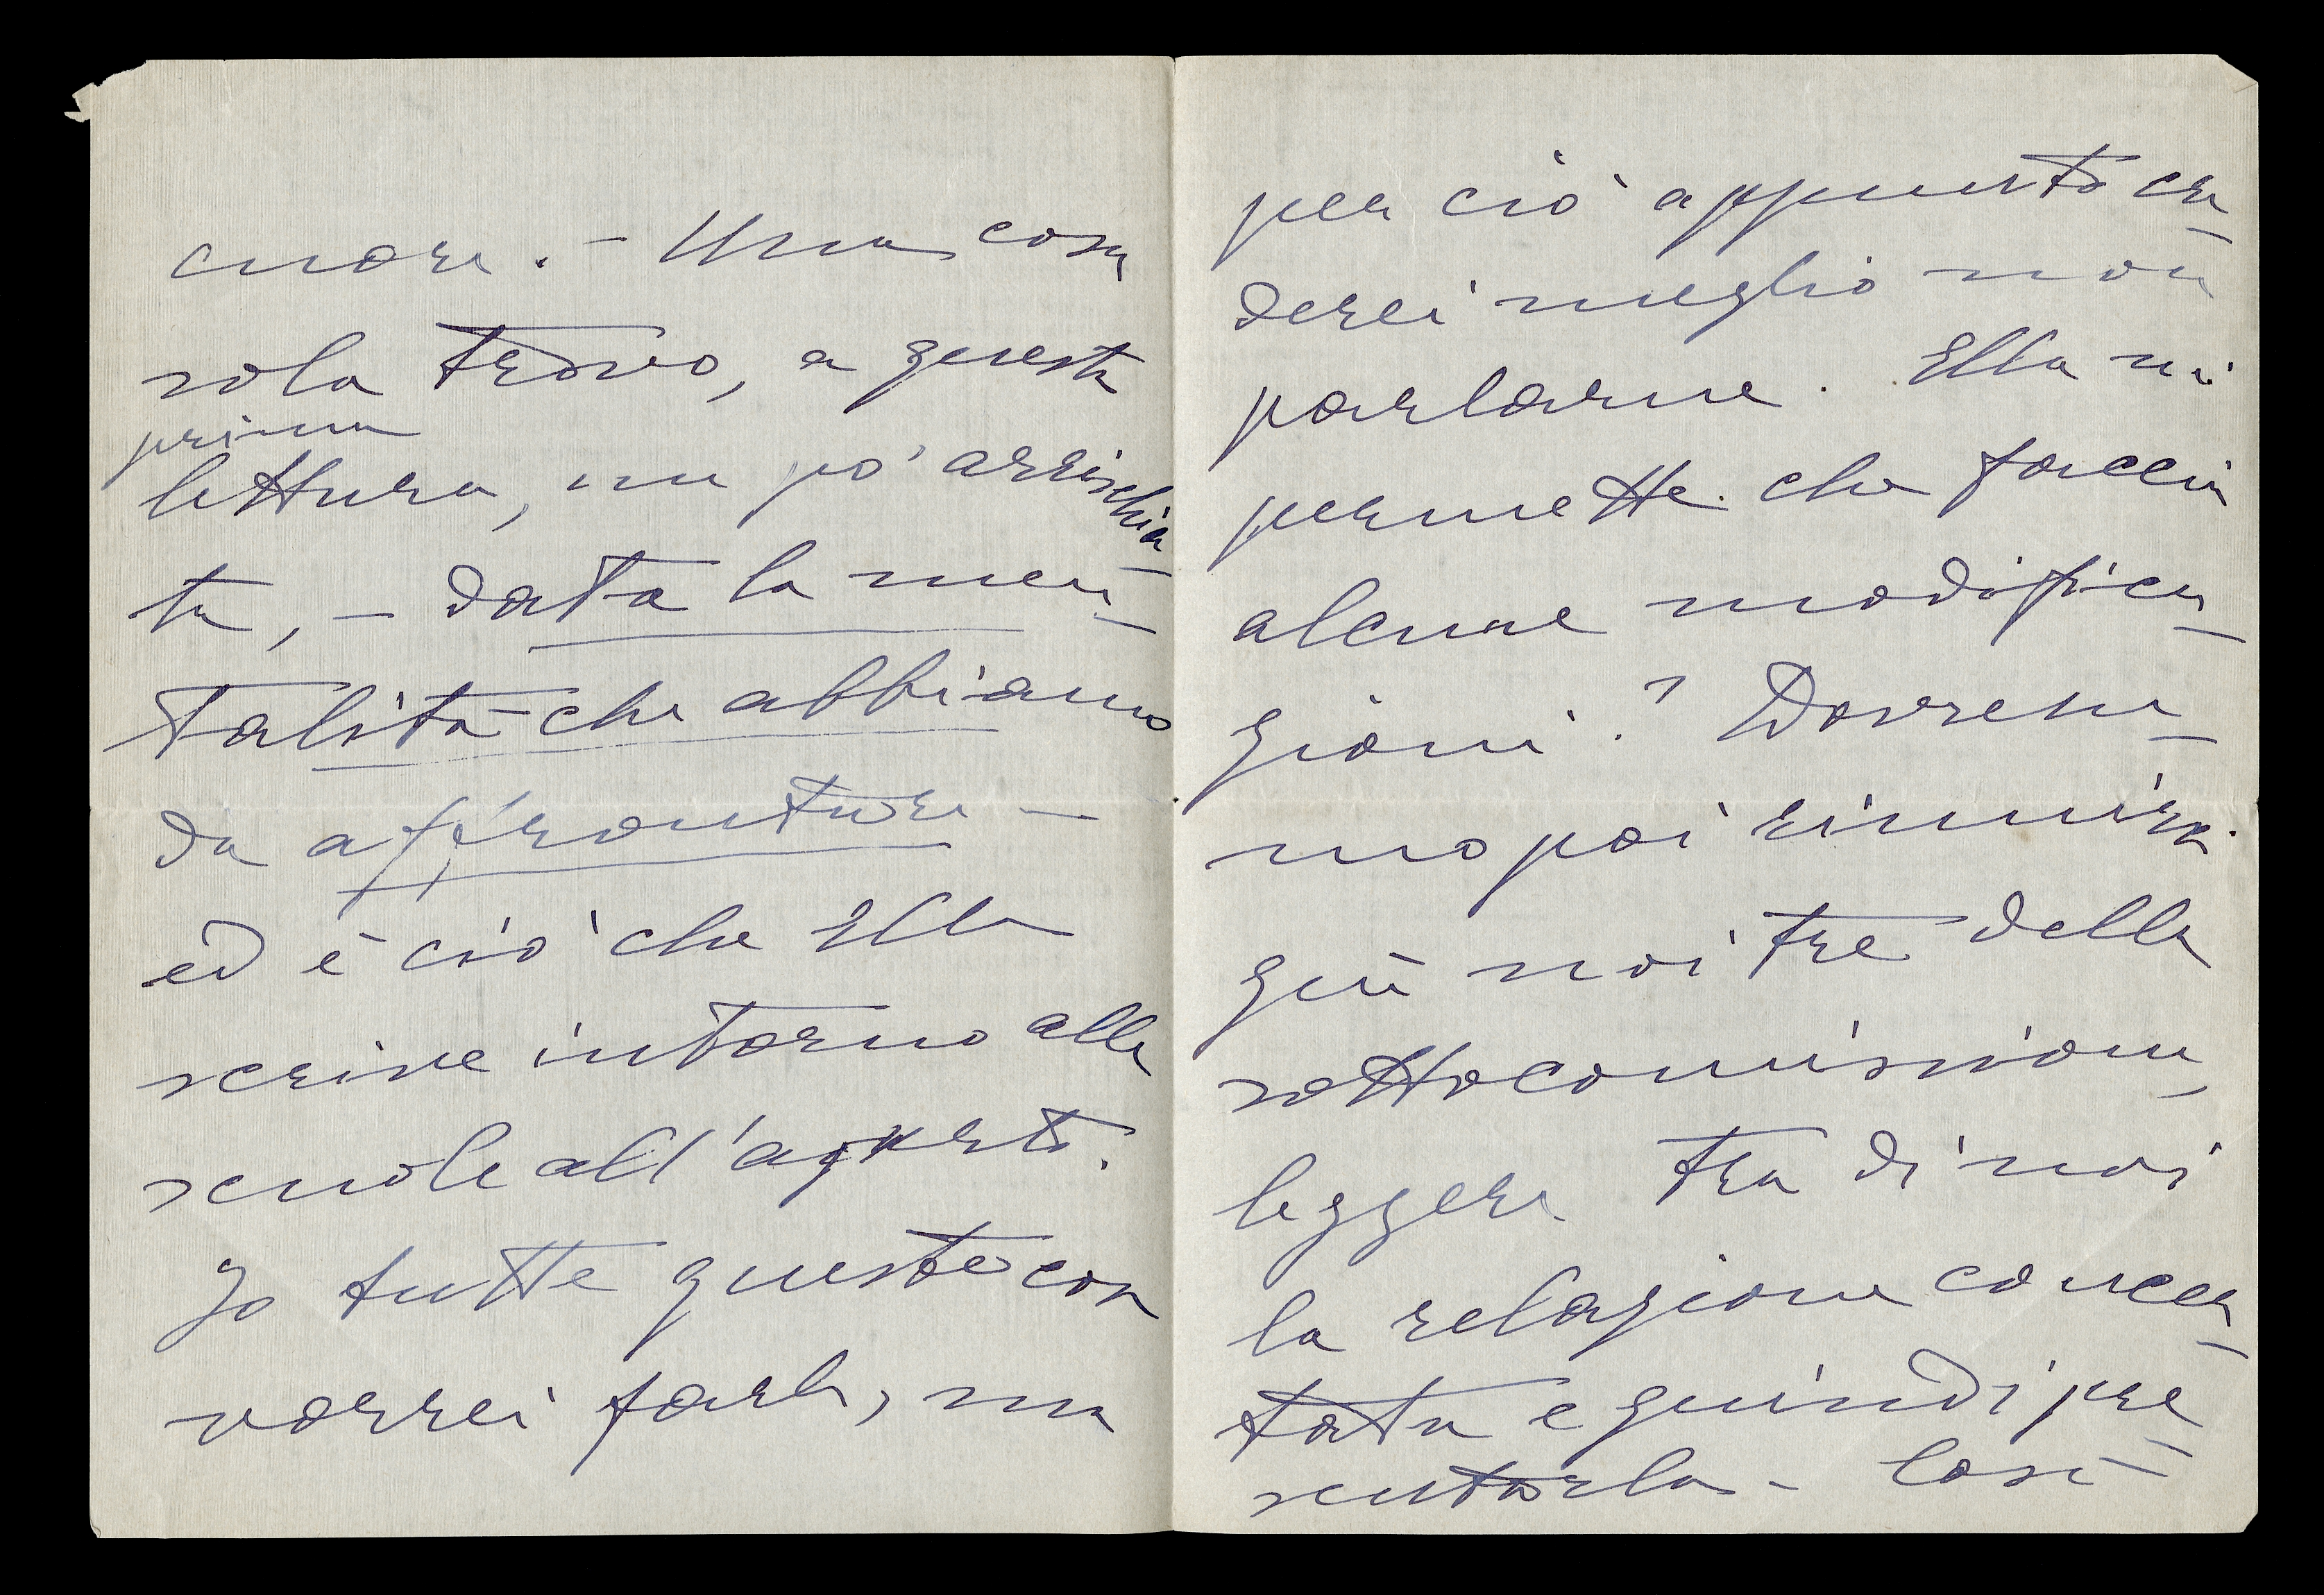 cuore. - Una cosa
sola trovo, a questa
prima
lettura, un po' arrischia
ta, - data la men-
talità che abbiamo
da affrontare -
ed è ciò che Ella
scrive intorno alle
scuole all'aperto.
Io tutte queste cose
vorrei farle, ma
per ciò appunto cre-
derei meglio non
parlarne. Ella mi
permette che faccia
alcune modifica-
zioni? Dovrem-
mo poi riunirci
qui noi tre della
sottocomissione,
leggere tra di noi
la relazione concer-
tata e quindi pre-
sentarla - Così